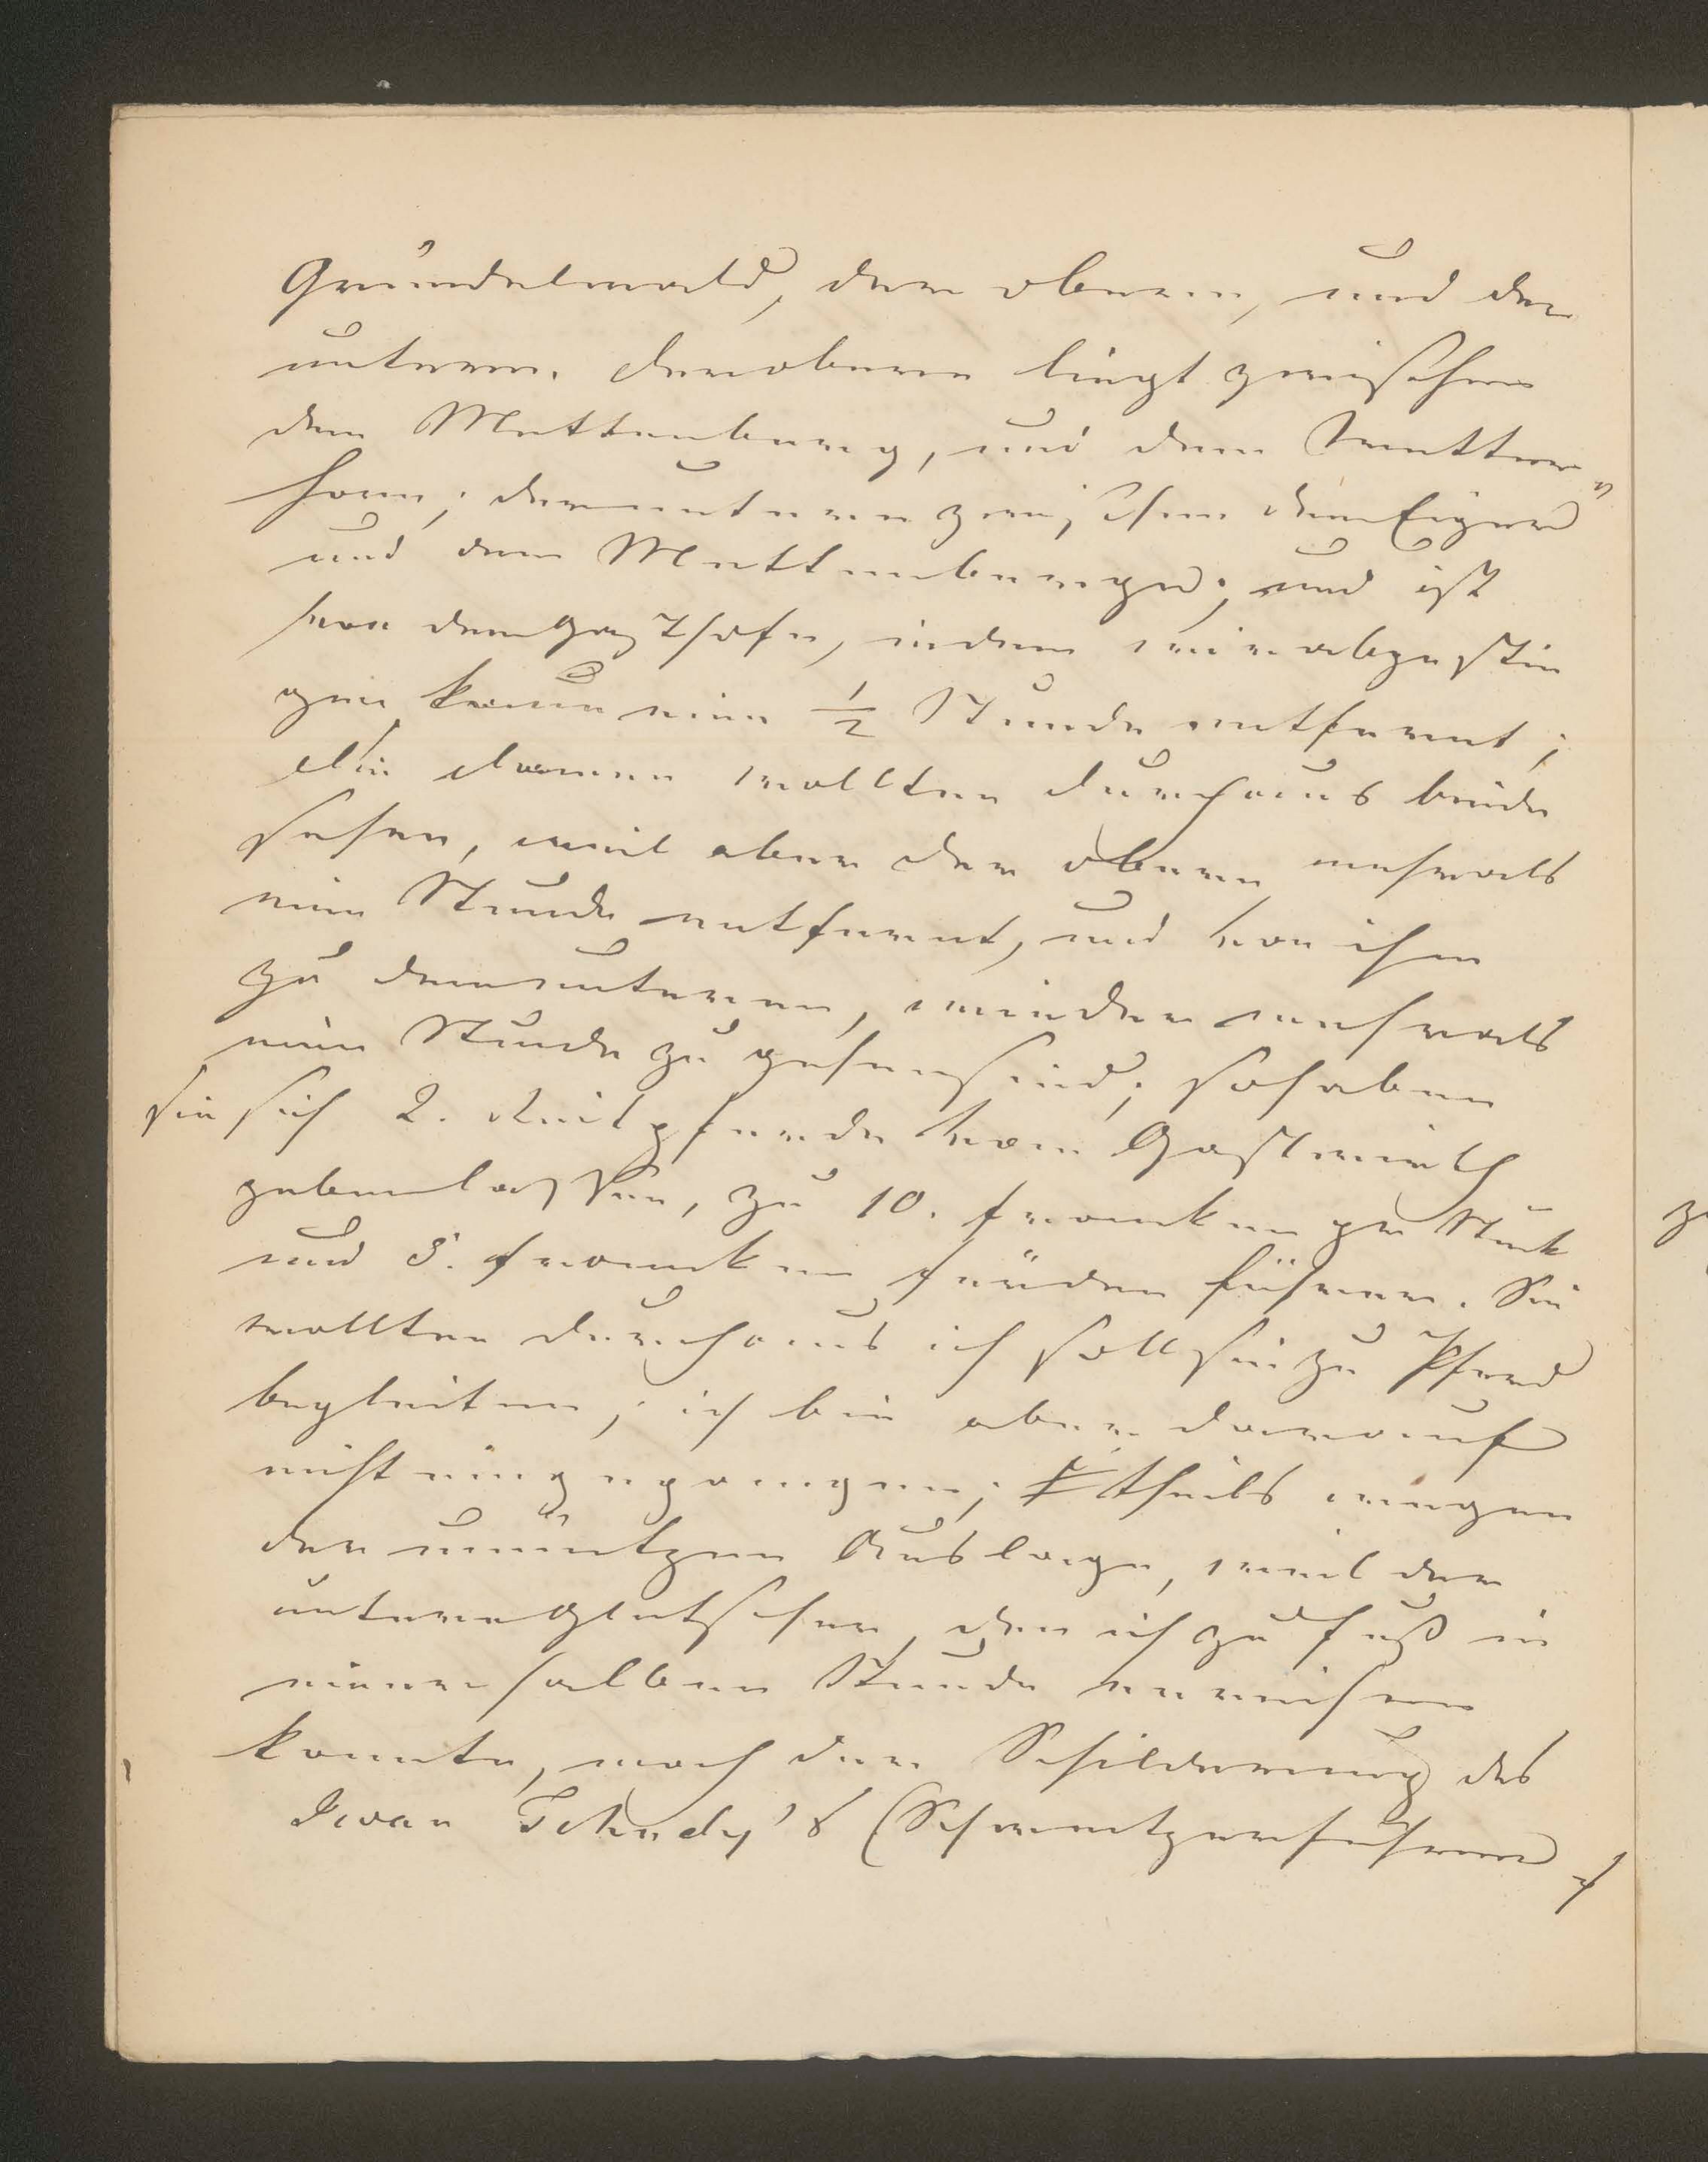 Gründelwald, der obere, und der
untere. Der obere liegt zwischen
dem Mettenberg, und dem Wetter„
horn; der untere zwischen dem Eiger
und dem Mettenberge; und ist
von dem Gasthofe, in dem wir abgestie
gen kaum eine ½ Stunde entfernt;
die Damen wollten durchaus beide
sehen, weil aber der obere mehr als
eine Stunde entfernt, und von ihm
zu dem unteren, wieder mehr als
eine Stunde zu gehen sind; so haben
sie sich 2. Reitpferde vom Gastwirth
geben lassen, zu 10. Franken pr Stück
und 5. Franken für den Führer. Sie
wollten durchaus ich soll sie zu Pferd
begleiten; ich bin aber darauf
nicht eingegangen; theils wegen
der unnützen Auslage, weil der
untere Gletscher, den ich zu Fuß in
einer halben Stunde erreichen
konnte, nach der Schilderung des
Iwan Tchudy's (Schweitzerführer